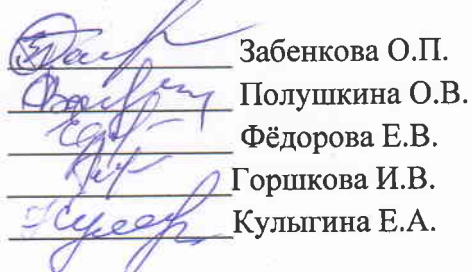 Забенкова О.П.
Полушкина О.В.
Фёдорова Е.В.
Горшкова И.В.
Кулыгина Е.А.